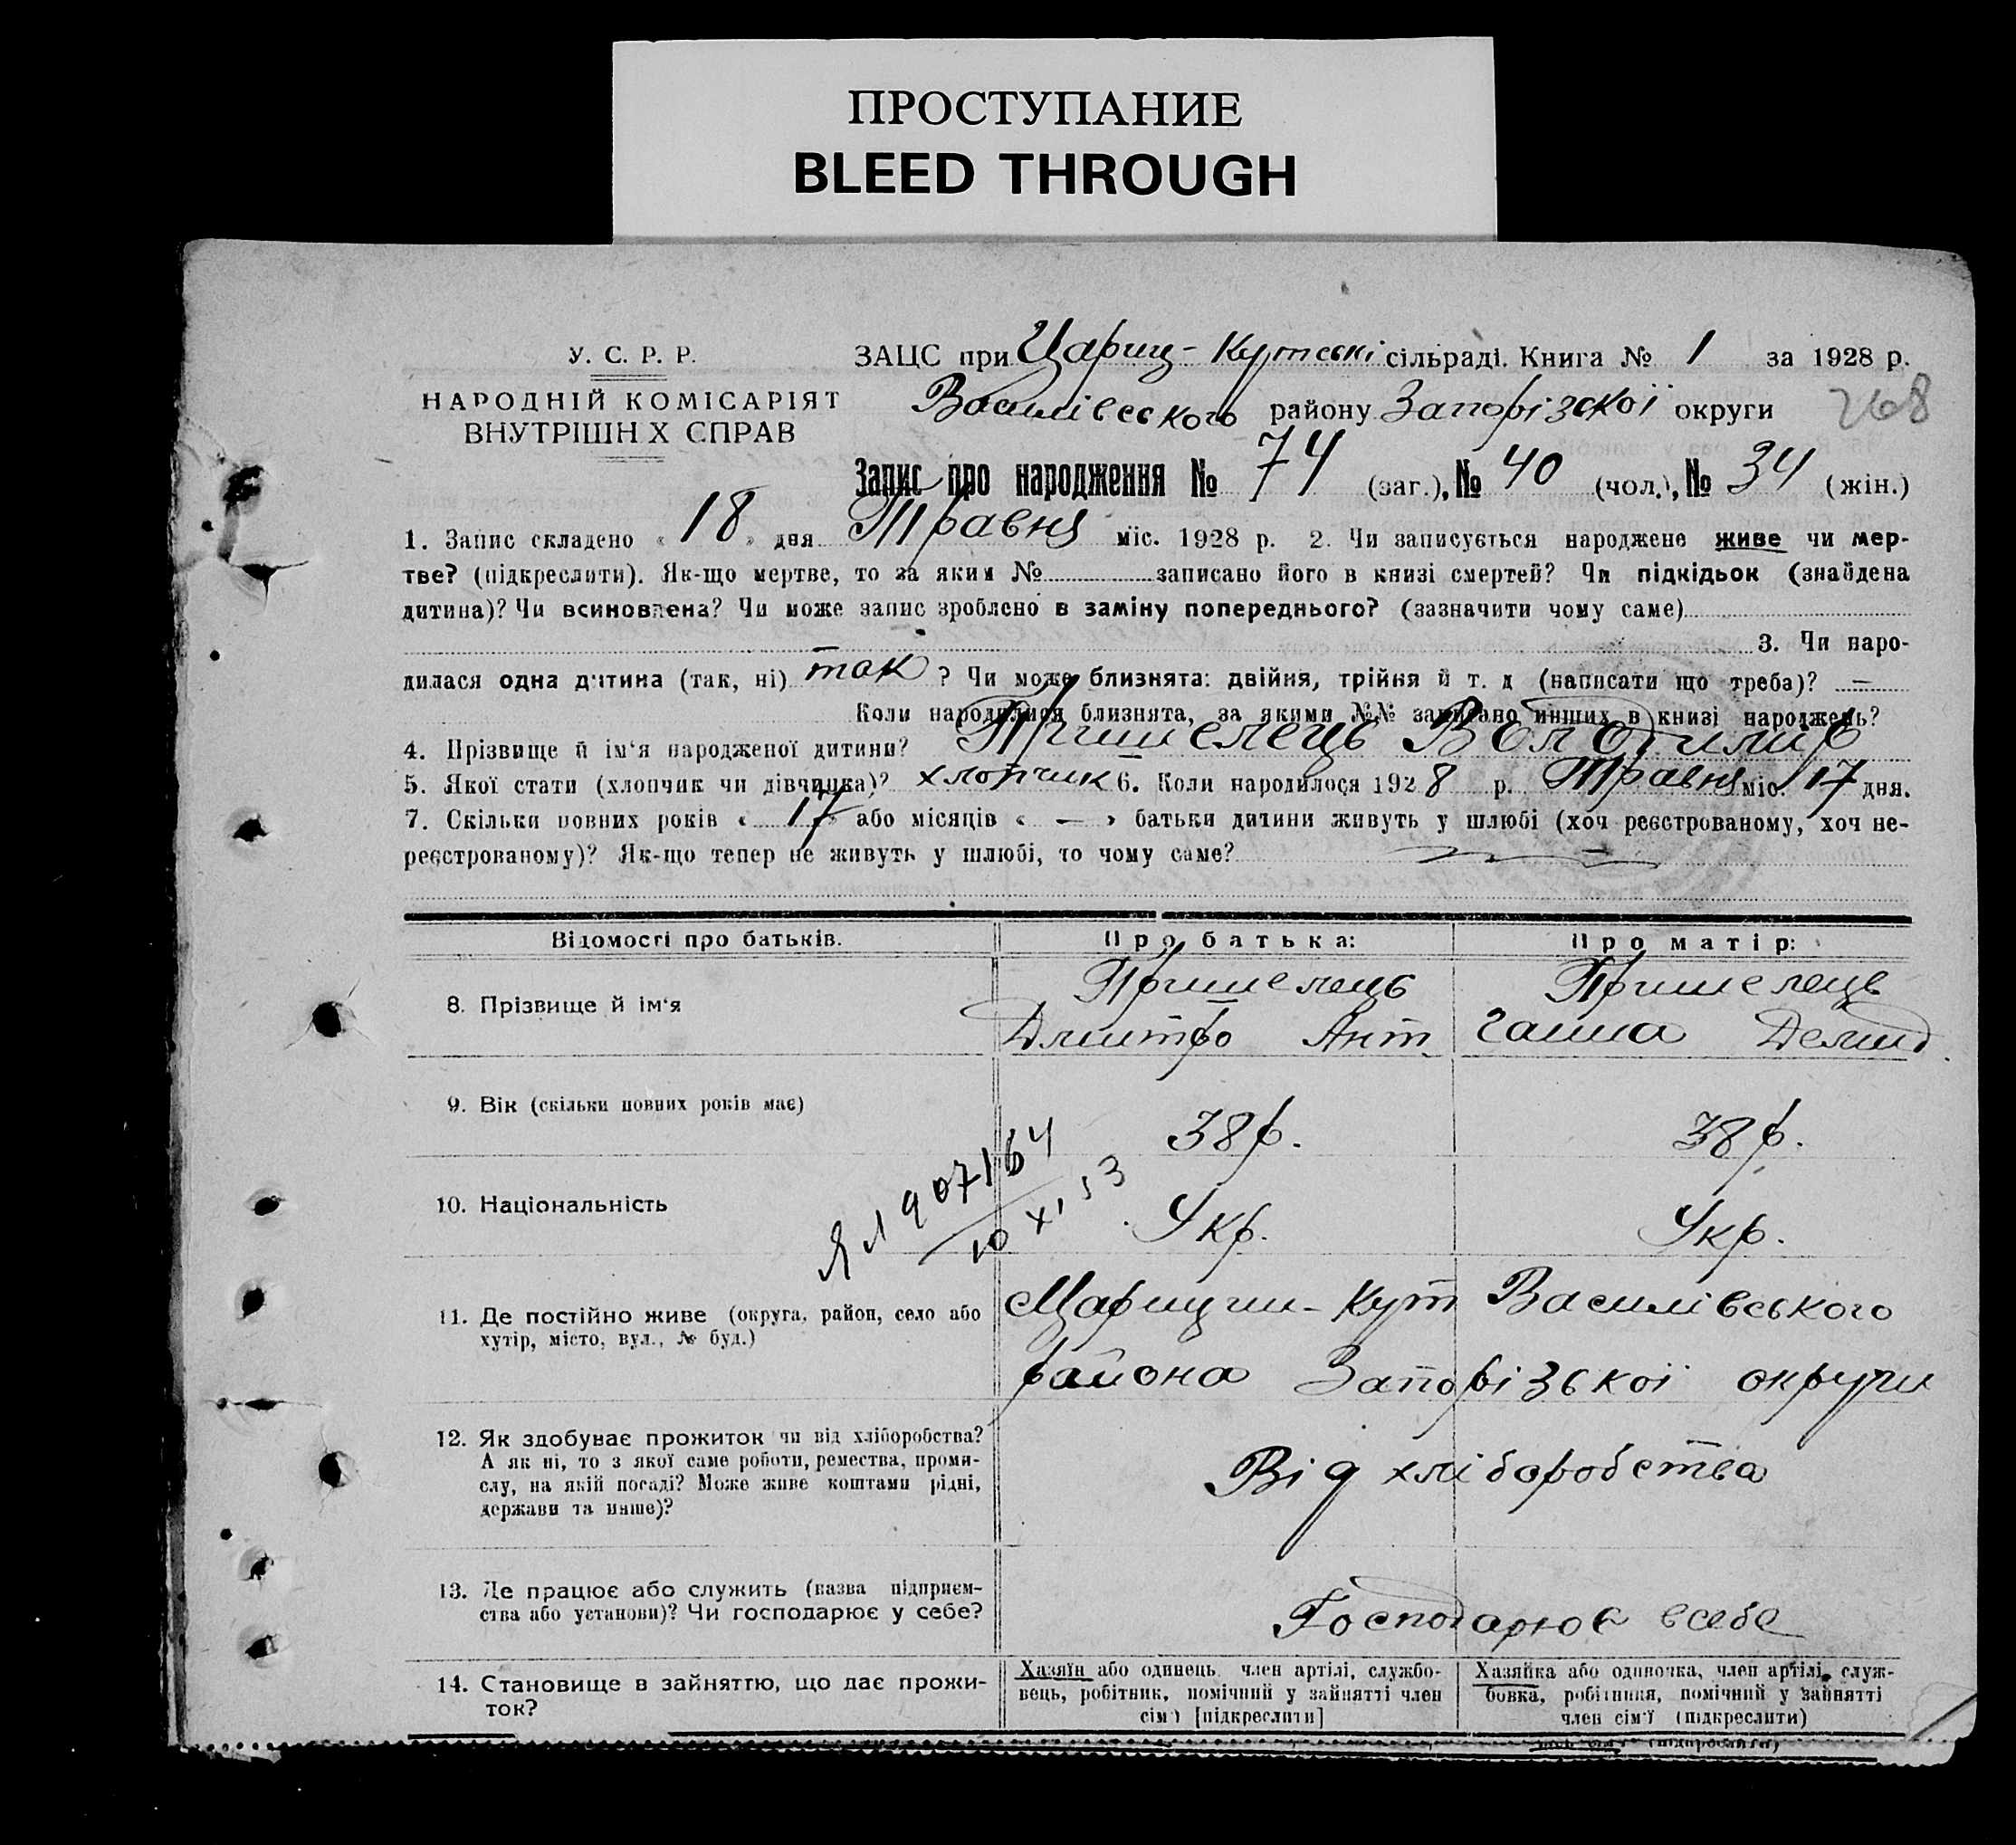 ПРОСТУПАНИЕ
BLEED THROUGH
У. С. Р. Р.
НАРОДНІЙ КОМІСАРІЯТ
ВНУТРІШН Х СПРАВ
ЗАЦС при Цариц-Кутські сільраді. Книга № 1 за 1928 р.
Василівського району Запорізької округи
268
Запис про народження № 74 (заг.), № 40 (чол.), № 34 (жін.)
1. Запис складено « 18 » дня Травня міс. 1928 р. 2. Чи записується народжене живе чи мер-
тве? (підкреслити). Як-що мертве, то за яким № записано його в книзі смертей? Чи підкідьок (знайдена
дитина)? Чи всиновлена? Чи може запис зроблено в заміну попереднього? (зазначити чому саме)
3. Чи наро-
дилася одна дитина (так, ні) так ? Чи може близнята: двійня, трійня й т. д (написати що треба)? —
Коли народилися близнята, за якими №№ записано инших в книзі народжень?
4. Прізвище й ім'я народженої дитини? Пришелець Володимир
5. Якої стати (хлопчик чи дівчинка)? хлопчик 6. Коли народилося 1928 р. Травня міс. 17 дня.
7. Скільки повних років « 17 » або місяців « — » батьки дитини живуть у шлюбі (хоч реєстрованому, хоч не-
реєстрованому)? Як-що тепер не живуть у шлюбі, то чому саме? —
Відомості про батьків.
Про батька:
Про матір:
8. Прізвище й ім'я
Пришелець
Дмитро Ант
Пришелець
Ганна Демид.
9. Вік (скільки повних років має)
38 р.
38 р.
10. Національність
Укр.
Укр.
ЯЛ 907164
10 XI 53
11. Де постійно живе (округа, район, село або
хутір, місто, вул., № буд.)
Царицин-Кут Василівського
района Запорізької округи
12. Як здобуває прожиток чи від хліборобства?
А як ні, то з якої саме роботи, ремества, проми-
слу, на якій посаді? Може живе коштами рідні,
держави та инше)?
Від хліборобства
13. Де працює або служить (назва підприєм-
ства або установи)? Чи господарює у себе?
Господарює всебе
14. Становище в зайняттю, що дає прожи-
ток?
Хазяїн або одинець член артілі, службо-
вець, робітник, помічний у зайнятті член
сім'ї [підкреслити]
Хазяйка або одиночка, член артілі, служ-
бовка, робітниця, помічний у зайнятті
член сім'ї (підкреслити)